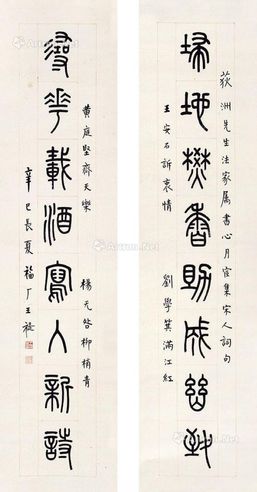 荻洲先生法家属書心月宧集宋人詞句
埽地燓香助成幽致
王安石訴衷情 劉學箕滿江紅
黃庭堅齊天樂 楊无咎柳梢青
尋花載酒寫入新詩
辛巳長夏福厂王禔
Artron.Net